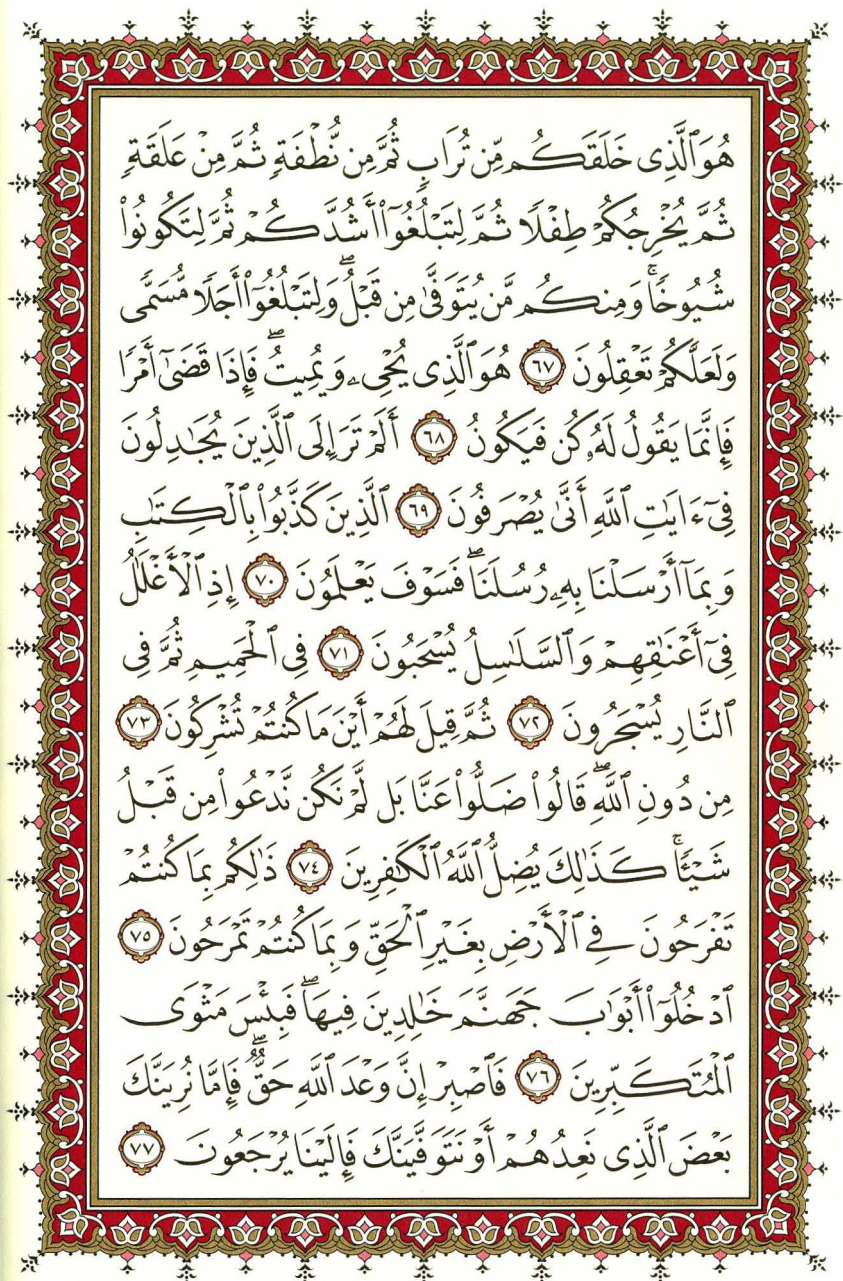 هُوَ ٱلَّذِى خَلَقَكُم مِّن تُرَابٍ ثُمَّ مِن نُّطْفَةٍ ثُمَّ مِنْ عَلَقَةٍ
ثُمَّ يُخْرِجُكُمْ طِفْلًا ثُمَّ لِتَبْلُغُوٓا۟ أَشُدَّكُمْ ثُمَّ لِتَكُونُوا۟
شُيُوخًا ۚ وَمِنكُم مَّن يُتَوَفَّىٰ مِن قَبْلُ ۖ وَلِتَبْلُغُوٓا۟ أَجَلًا مُّسَمًّى
وَلَعَلَّكُمْ تَعْقِلُونَ ٦٧ هُوَ ٱلَّذِى يُحْىِۦ وَيُمِيتُ ۖ فَإِذَا قَضَىٰٓ أَمْرًا
فَإِنَّمَا يَقُولُ لَهُۥ كُن فَيَكُونُ ٦٨ أَلَمْ تَرَ إِلَى ٱلَّذِينَ يُجَٰدِلُونَ
فِىٓ ءَايَٰتِ ٱللَّهِ أَنَّىٰ يُصْرَفُونَ ٦٩ ٱلَّذِينَ كَذَّبُوا۟ بِٱلْكِتَٰبِ
وَبِمَآ أَرْسَلْنَا بِهِۦ رُسُلَنَا ۖ فَسَوْفَ يَعْلَمُونَ ٧٠ إِذِ ٱلْأَغْلَٰلُ
فِىٓ أَعْنَٰقِهِمْ وَٱلسَّلَٰسِلُ يُسْحَبُونَ ٧١ فِى ٱلْحَمِيمِ ثُمَّ فِى
ٱلنَّارِ يُسْجَرُونَ ٧٢ ثُمَّ قِيلَ لَهُمْ أَيْنَ مَا كُنتُمْ تُشْرِكُونَ ٧٣
مِن دُونِ ٱللَّهِ ۖ قَالُوا۟ ضَلُّوا۟ عَنَّا بَل لَّمْ نَكُن نَّدْعُوا۟ مِن قَبْلُ
شَيْـًٔا ۚ كَذَٰلِكَ يُضِلُّ ٱللَّهُ ٱلْكَٰفِرِينَ ٧٤ ذَٰلِكُم بِمَا كُنتُمْ
تَفْرَحُونَ فِى ٱلْأَرْضِ بِغَيْرِ ٱلْحَقِّ وَبِمَا كُنتُمْ تَمْرَحُونَ ٧٥
ٱدْخُلُوٓا۟ أَبْوَٰبَ جَهَنَّمَ خَٰلِدِينَ فِيهَا ۖ فَبِئْسَ مَثْوَى
ٱلْمُتَكَبِّرِينَ ٧٦ فَٱصْبِرْ إِنَّ وَعْدَ ٱللَّهِ حَقٌّ ۚ فَإِمَّا نُرِيَنَّكَ
بَعْضَ ٱلَّذِى نَعِدُهُمْ أَوْ نَتَوَفَّيَنَّكَ فَإِلَيْنَا يُرْجَعُونَ ٧٧